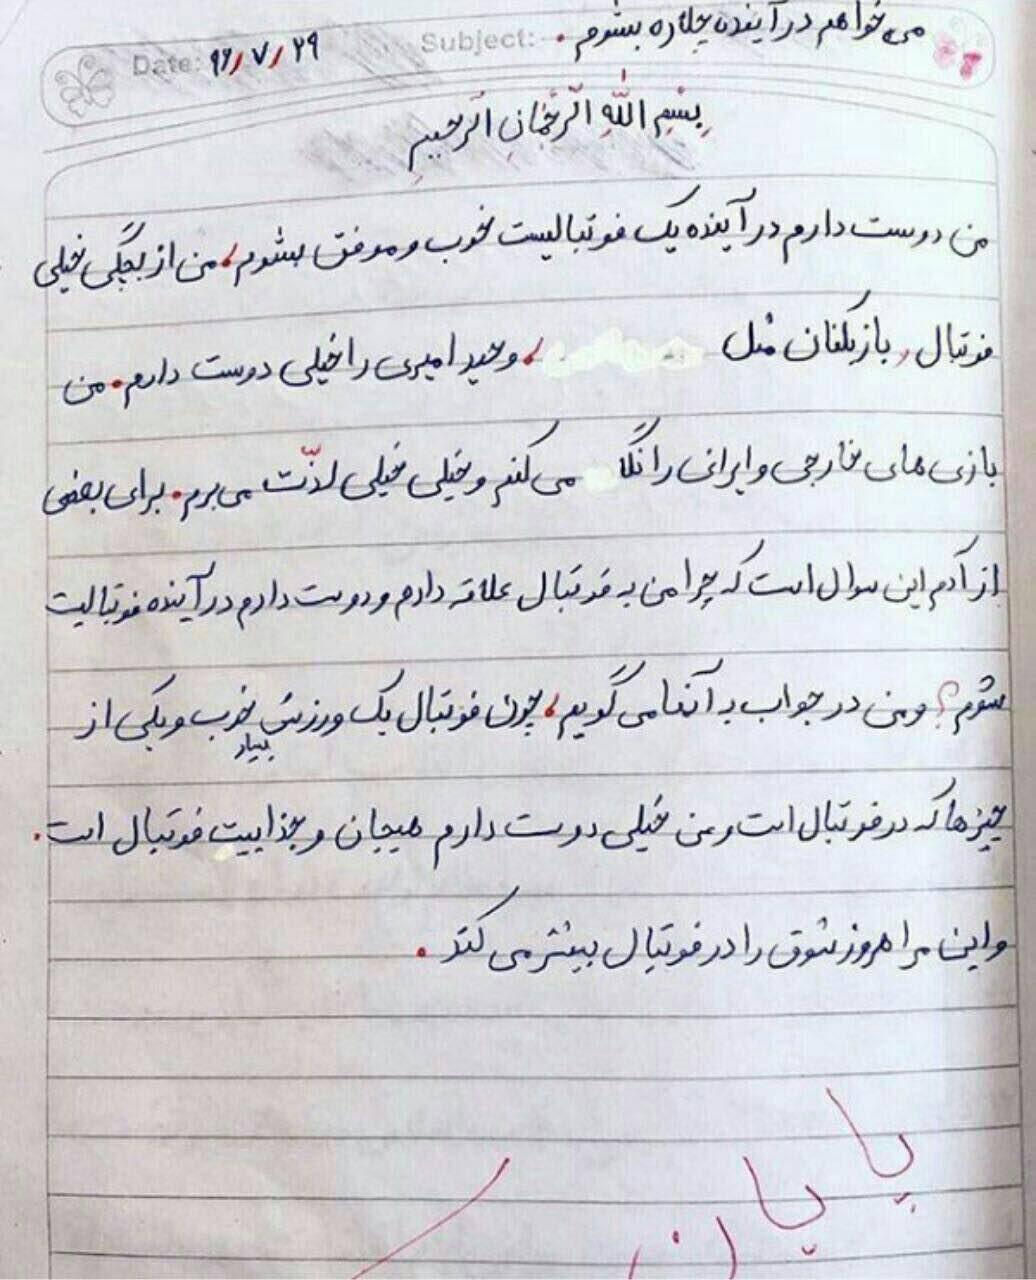 می خواهم در آینده چکاره بشوم.
Subject:
Date: ۹۶/۷/۲۹
بِسْمِ اللّٰهِ الرَّحْمٰانِ الرَّحیمِ
من دوست دارم در آینده یک فوتبالیست خوب و موفق بشوم، من از بچگی خیلی
فوتبال، بازیکنان مثل ، وحید امیری را خیلی دوست دارم. من
بازی های خارجی و ایرانی را نگاه می کنم و خیلی خیلی لذّت می برم. برای بعضی
از آدم این سوال است که چرا من به فوتبال علاقه دارم و دوست دارم در آینده فوتبالیت
شوم؟ و من در جواب به آنها می گویم، چون فوتبال یک ورزش خوب و یکی از
بسیار
چیزها که در فوتبال است و من خیلی دوست دارم هیجان و جذابیت فوتبال است.
و این مرا هروز شوق را در فوتبال بیشتر می کند.
پایان